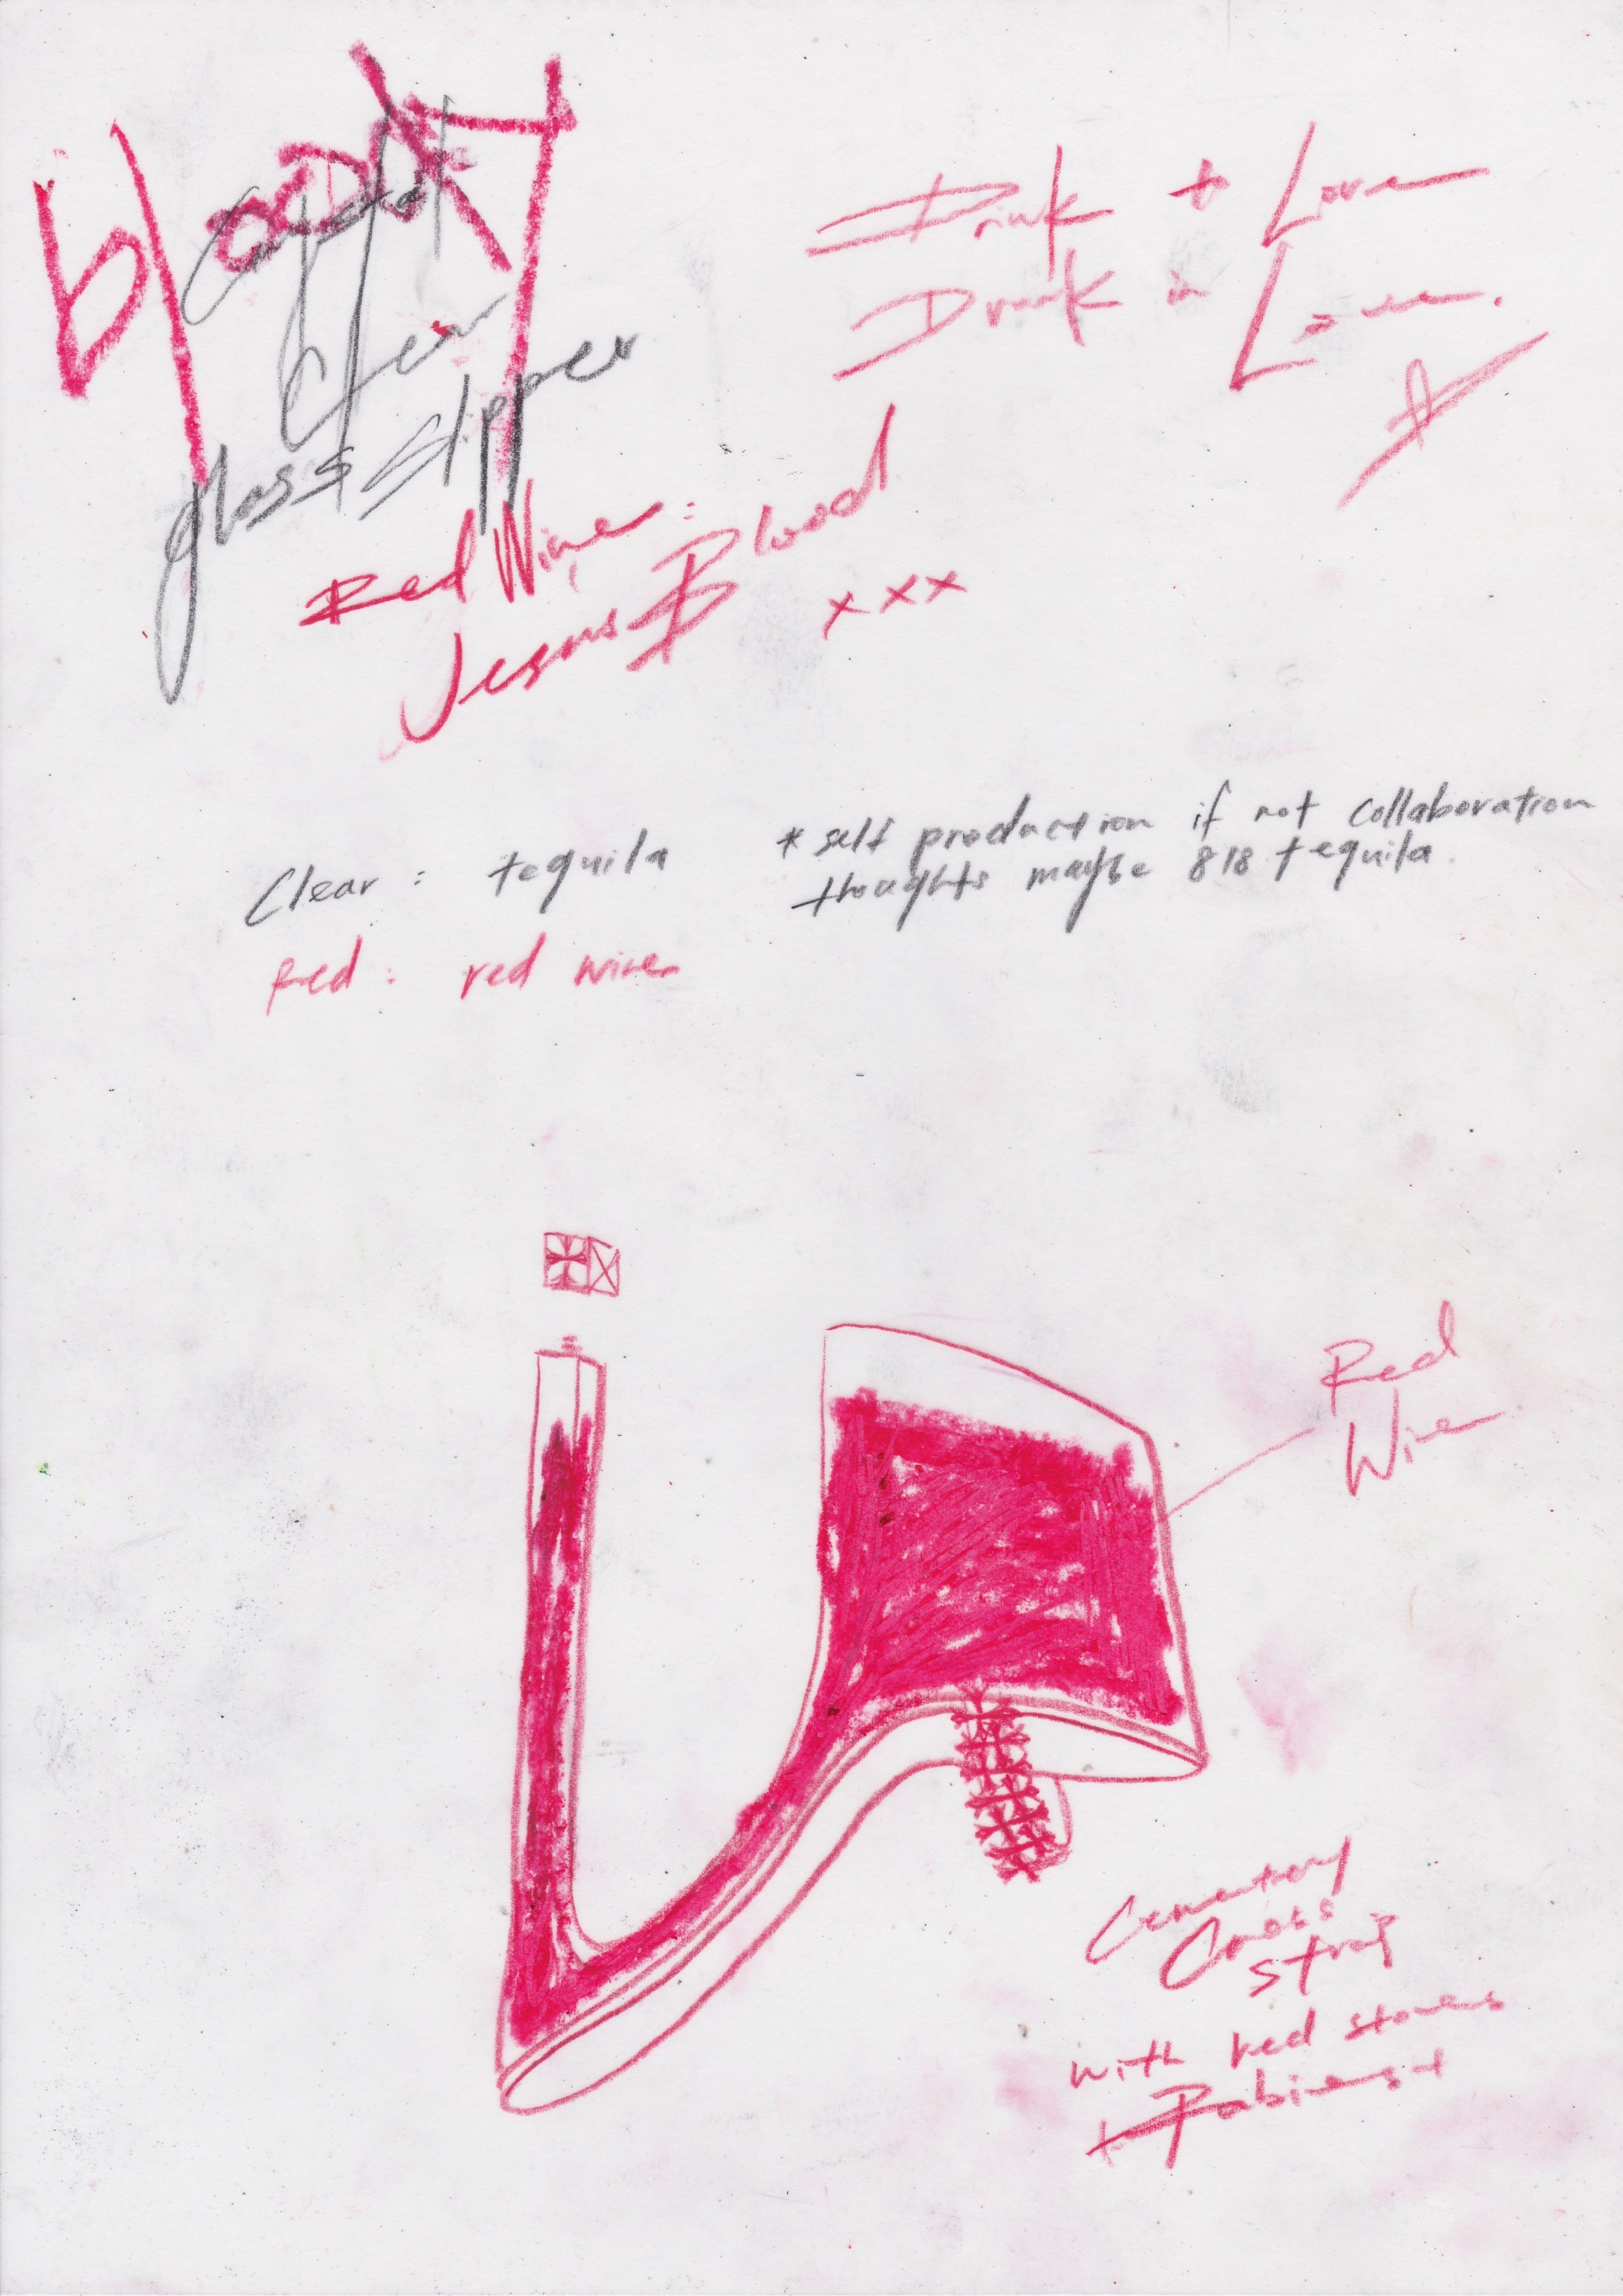 bloody
Crystal
Clear
glass slipper
Drink to Love
Drunk in Love.
Red Wine:
Jesus Blood
xxx
Clear : tequila
* self production if not collaboration
thoughts maybe 818 tequila.
Red : red wine
Red
Wine
Cemetery
Cross
strap
with red stones
+ Rubies +